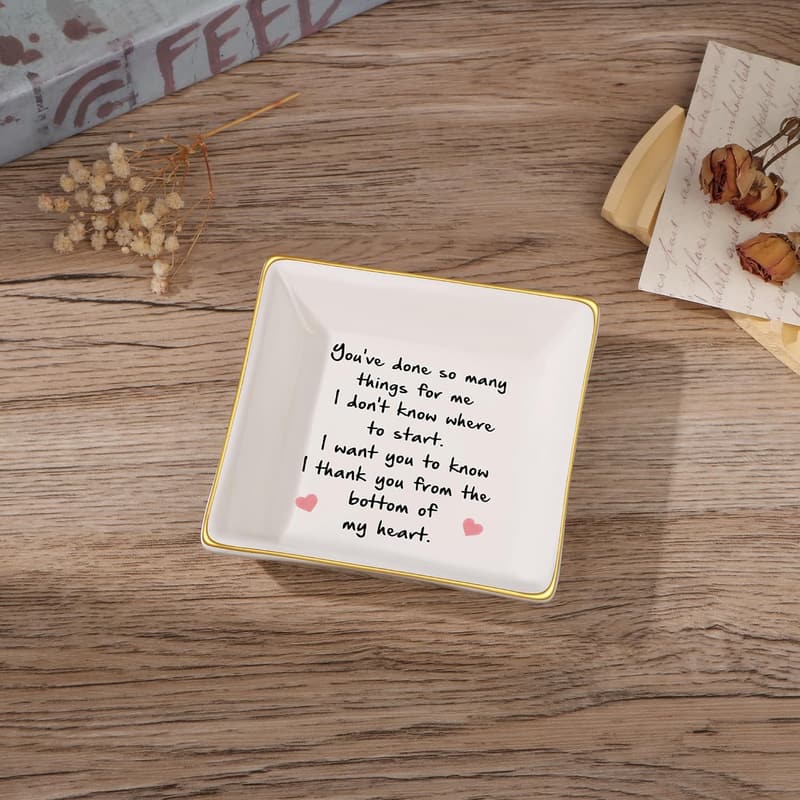 FEED
You've done so many
things for me
I don't know where
to start.
I want you to know
I thank you from the
bottom of
my heart.